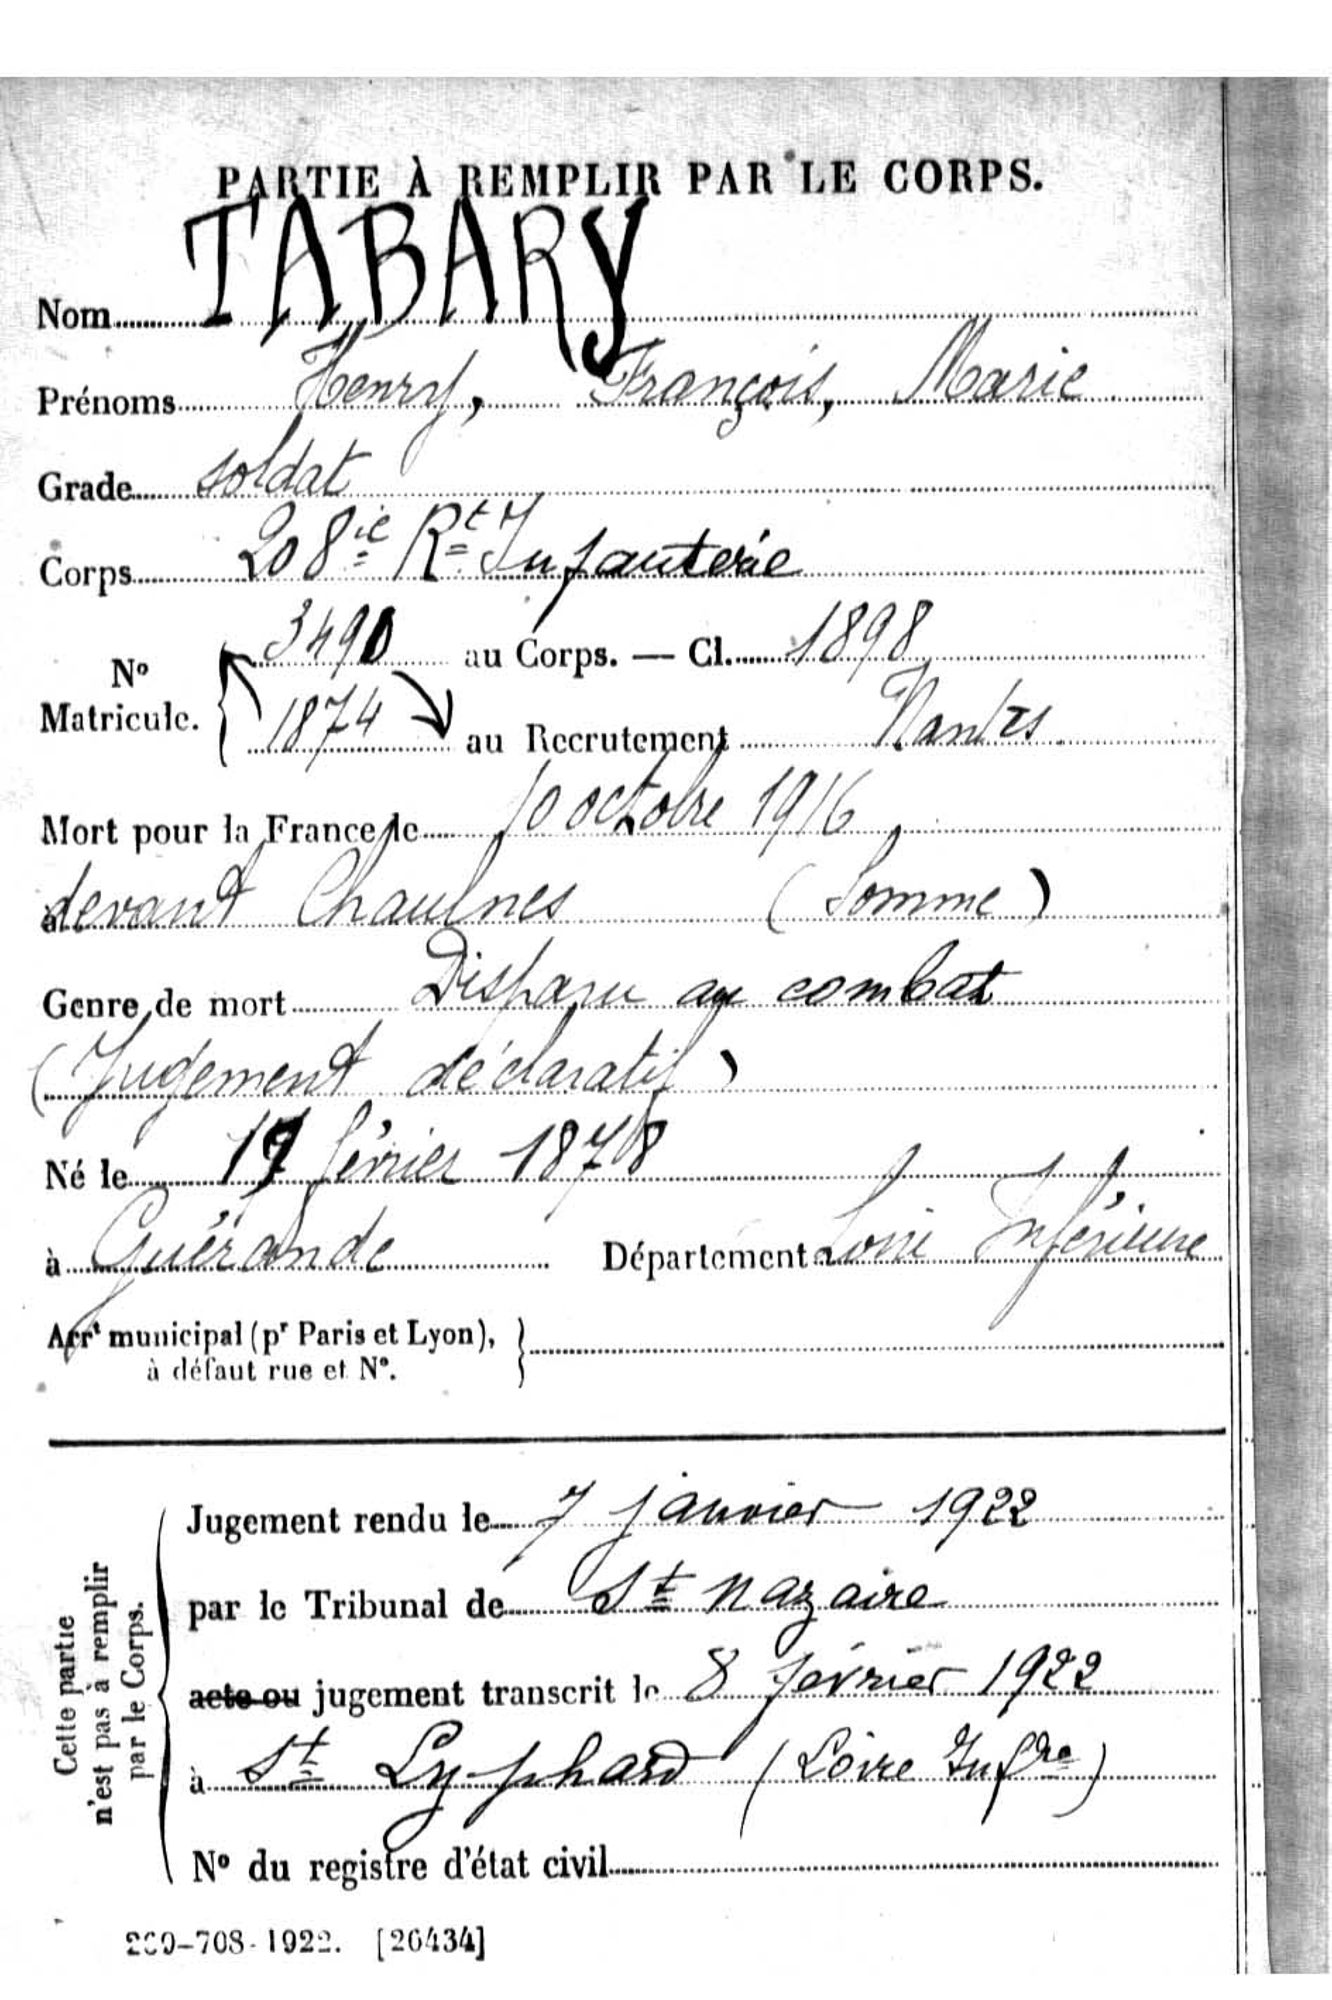 PARTIE À REMPLIR PAR LE CORPS.
Nom TABARY
Prénoms Henry, François, Marie
Grade soldat
Corps 208ie Rt Infanterie
No Matricule. 3490 au Corps. — Cl. 1898
1874 au Recrutement Nantes
Mort pour la France le 10 octobre 1916
à devant Chaulnes (Somme)
Genre de mort Disparu au combat
(Jugement déclaratif)
Né le février 1878
à Guérande Département Loire Inférieure
Arrt municipal (pr Paris et Lyon),
à défaut rue et No.
Cette partie
n'est pas à remplir
par le Corps.
Jugement rendu le 7 janvier 1922
par le Tribunal de St Nazaire
acte ou jugement transcrit le 8 février 1922
à St Lyphard (Loire Infre)
No du registre d'état civil
-708-1922. [26434]